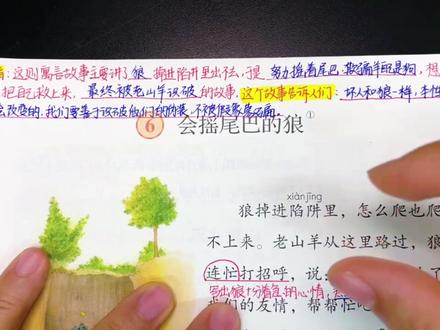 :这则寓言故事主要讲了狼掉进陷阱里出不去,于是努力摇着尾巴,欺骗羊自己是狗,想
把自己救上来,最终被老山羊识破的故事。这个故事告诉人们:坏人和狼一样,本性
改变的,我们要善于识破他们的伪装,不被假象蒙骗。
6 会摇尾巴的狼①
xiàn jǐng
狼掉进陷阱里,怎么爬也爬
不上来。老山羊从这里路过,狼
连忙打招呼,说:
写出狼十分着急的心情,
们的友情,帮帮忙吧